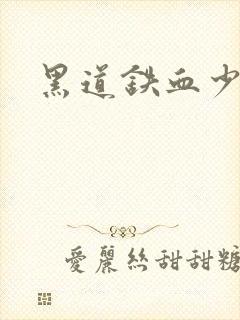 黑道鉄血少
愛麗絲甜甜糖